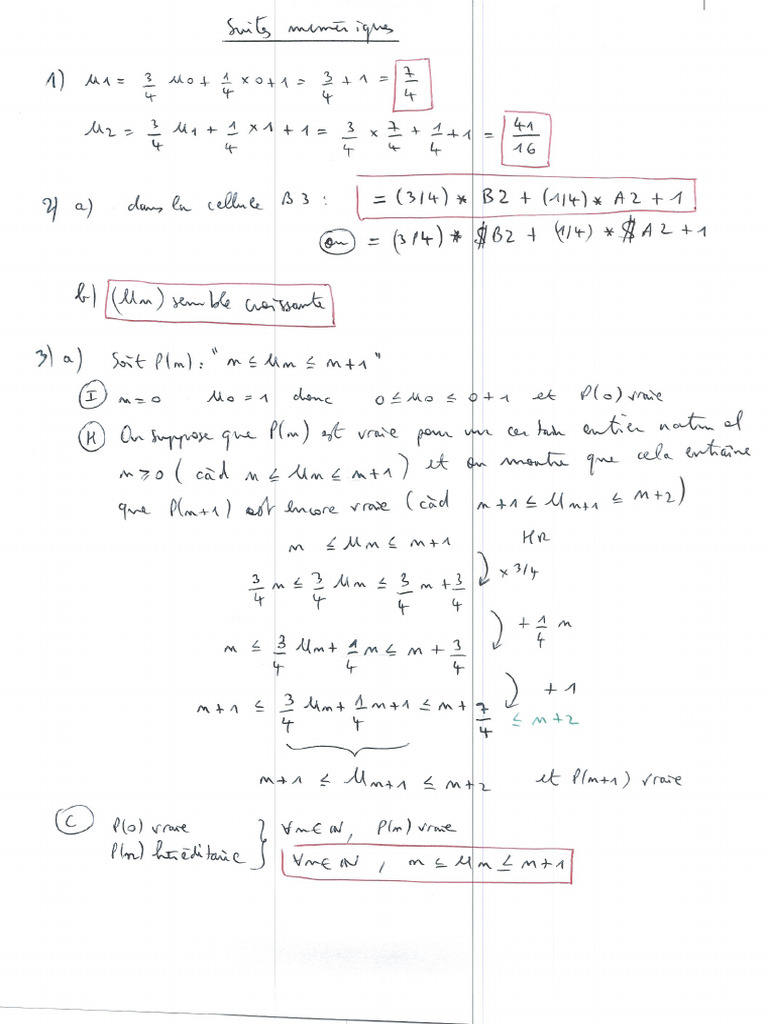 Suites numériques
1) u1 = 3/4 u0 + 1/4 × 0 + 1 = 3/4 + 1 = 7/4
u2 = 3/4 u1 + 1/4 × 1 + 1 = 3/4 × 7/4 + 1/4 + 1 = 41/16
2) a) dans la cellule B3 : = (3/4) * B2 + (1/4) * A2 + 1
ou = (3/4) * $B2 + (1/4) * $A2 + 1
b) (un) semble croissante
3) a) Soit P(n) : "n ≤ un ≤ n+1"
I n=0 u0 = 1 donc 0 ≤ u0 ≤ 0+1 et P(0) vraie
H On suppose que P(n) est vraie pour un certain entier naturel
n ≥ 0 (càd n ≤ un ≤ n+1) et on montre que cela entraîne
que P(n+1) est encore vraie (càd n+1 ≤ un+1 ≤ n+2)
n ≤ un ≤ n+1 HR
× 3/4
3/4 n ≤ 3/4 un ≤ 3/4 n + 3/4
+ 1/4 n
n ≤ 3/4 un + 1/4 n ≤ n + 3/4
+ 1
n+1 ≤ 3/4 un + 1/4 n + 1 ≤ n + 7/4 ≤ n+2
n+1 ≤ un+1 ≤ n+2 et P(n+1) vraie
C P(0) vraie } ∀n∈ℕ, P(n) vraie
P(n) héréditaire } ∀n∈ℕ, n ≤ un ≤ n+1